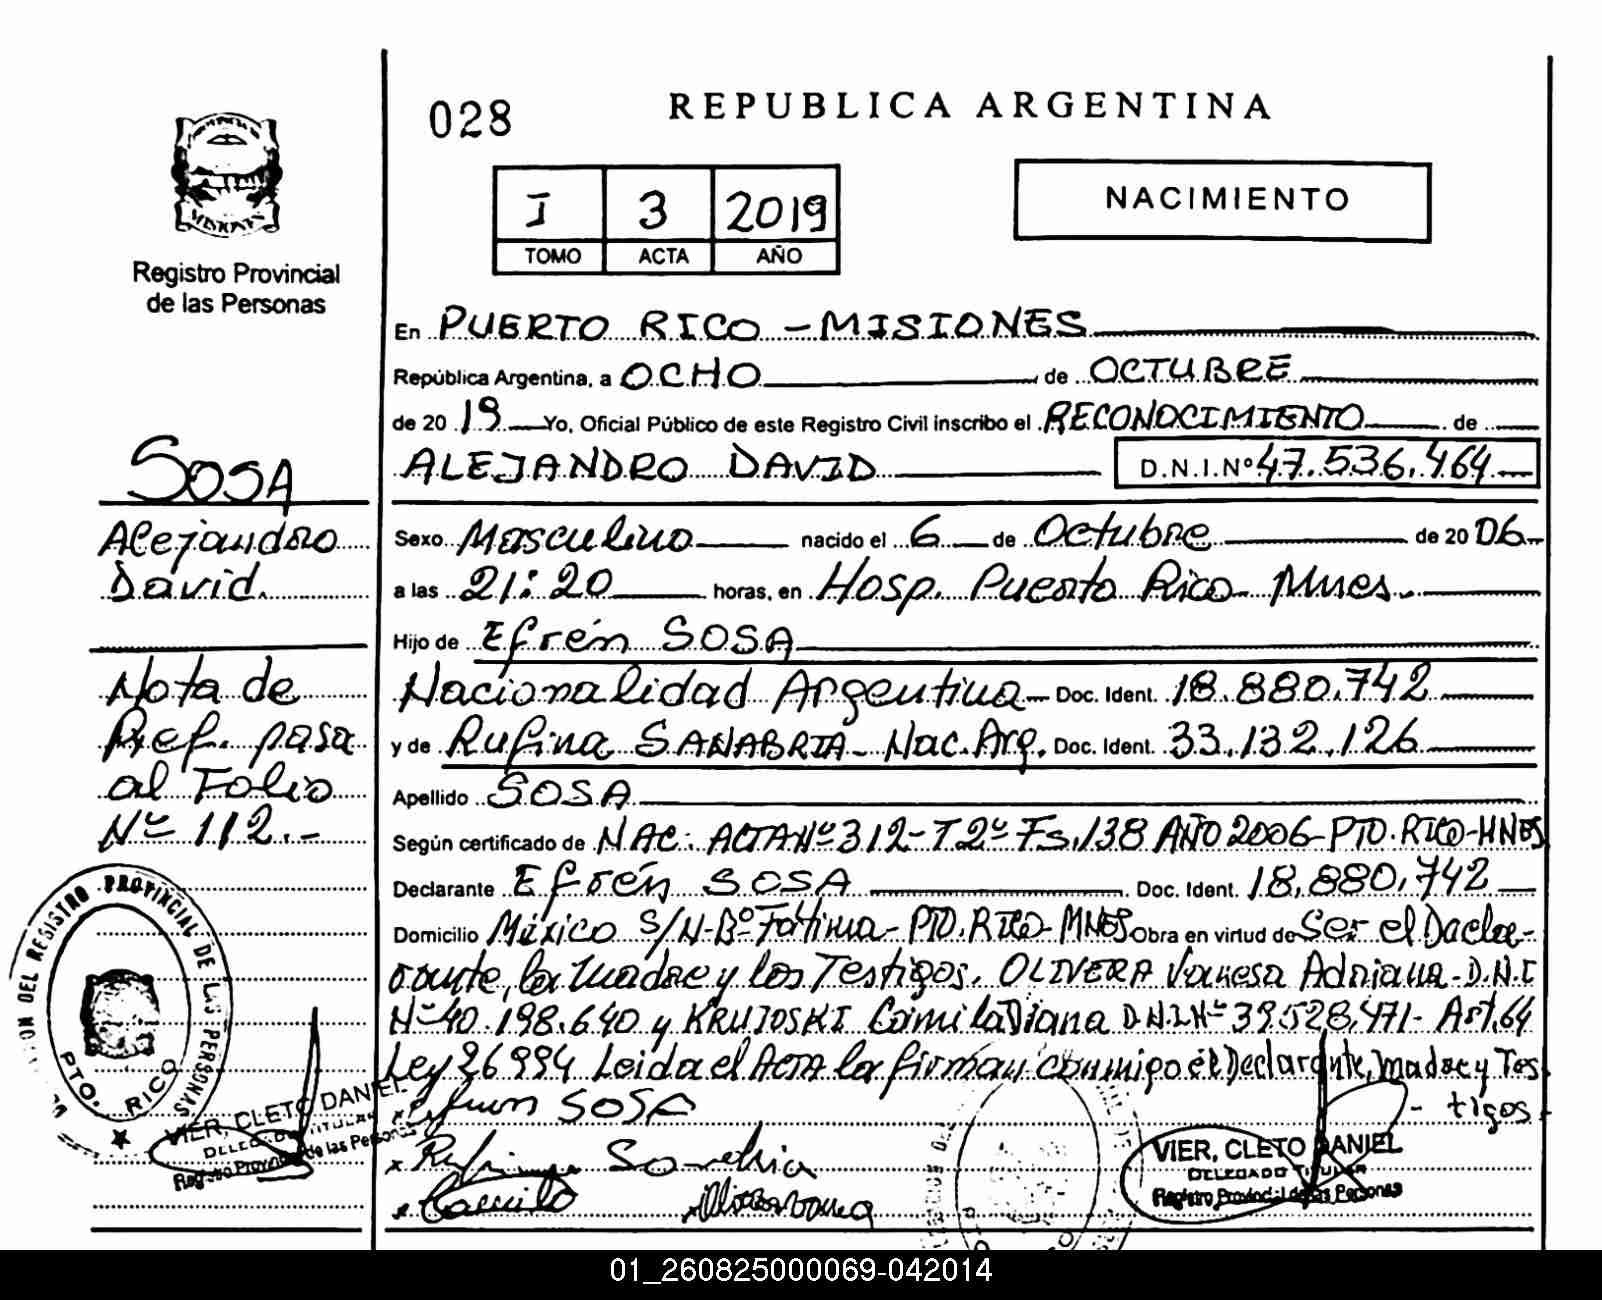 028
REPUBLICA ARGENTINA
MISIONES
Registro Provincial
de las Personas
I 3 2019
TOMO ACTA AÑO
NACIMIENTO
En PUERTO RICO - MISIONES
República Argentina, a OCHO de OCTUBRE
de 2019 Yo, Oficial Público de este Registro Civil inscribo el RECONOCIMIENTO de
ALEJANDRO DAVID D.N.I.Nº 47.536.464
SOSA
Alejandro
David
Sexo Masculino nacido el 6 de Octubre de 2006
a las 21:20 horas, en Hosp. Puerto Rico - Mnes.
Hijo de Efrén SOSA
Nacionalidad Argentina - Doc. Ident. 18.880.742
y de Rufina SANABRIA - Nac. Arg. Doc. Ident. 33.132.126
Apellido SOSA
Nota de
Ref. pasa
al Folio
Nº 112.-
Según certificado de NAC: ACTA Nº 312 - T 2º Fs. 138 AÑO 2006 - PTO. RICO - MNES
Declarante Efrén SOSA Doc. Ident. 18.880.742
Domicilio México S/N - Bº Fátima - PTO. RICO - MNES Obra en virtud de Ser el Decla-
rante, la madre y los Testigos. OLIVERA Vanesa Adriana - D.N.I
Nº 40.198.640 y KRUJOSKI Camila Diana D.N.I Nº 39.528.471 - Art. 64
Ley 26994 Leida el Acta la firman conmigo el Declarante, madre y Tes-
tigos.
SOSA
PROVINCIAL DE LAS PERSONAS
DEL REGISTRO
PTO. RICO
VIER, CLETO DANIEL
DELEGADO TITULAR
Registro Provincial de las Personas
VIER, CLETO DANIEL
DELEGADO TITULAR
Registro Provincial de las Personas
x Camila
01_260825000069-042014